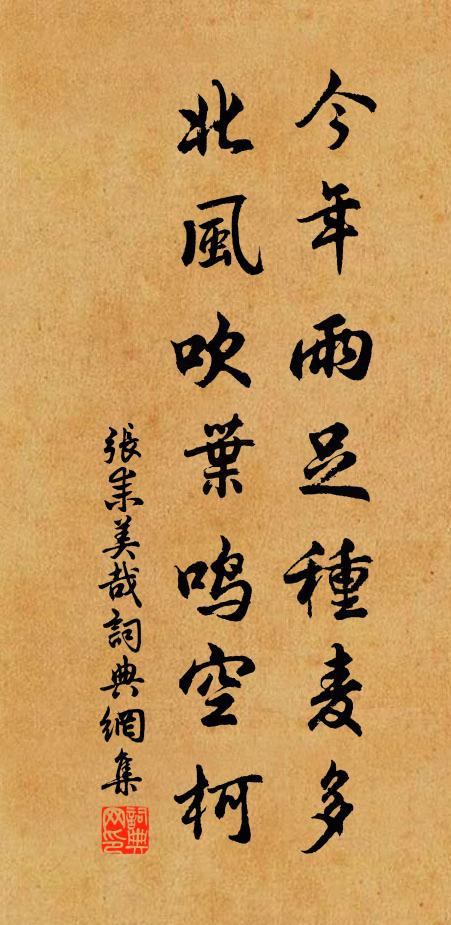 今年雨足種麦多
北風吹葉鳴空柯
張耒美哉詞典網集
詞典网印